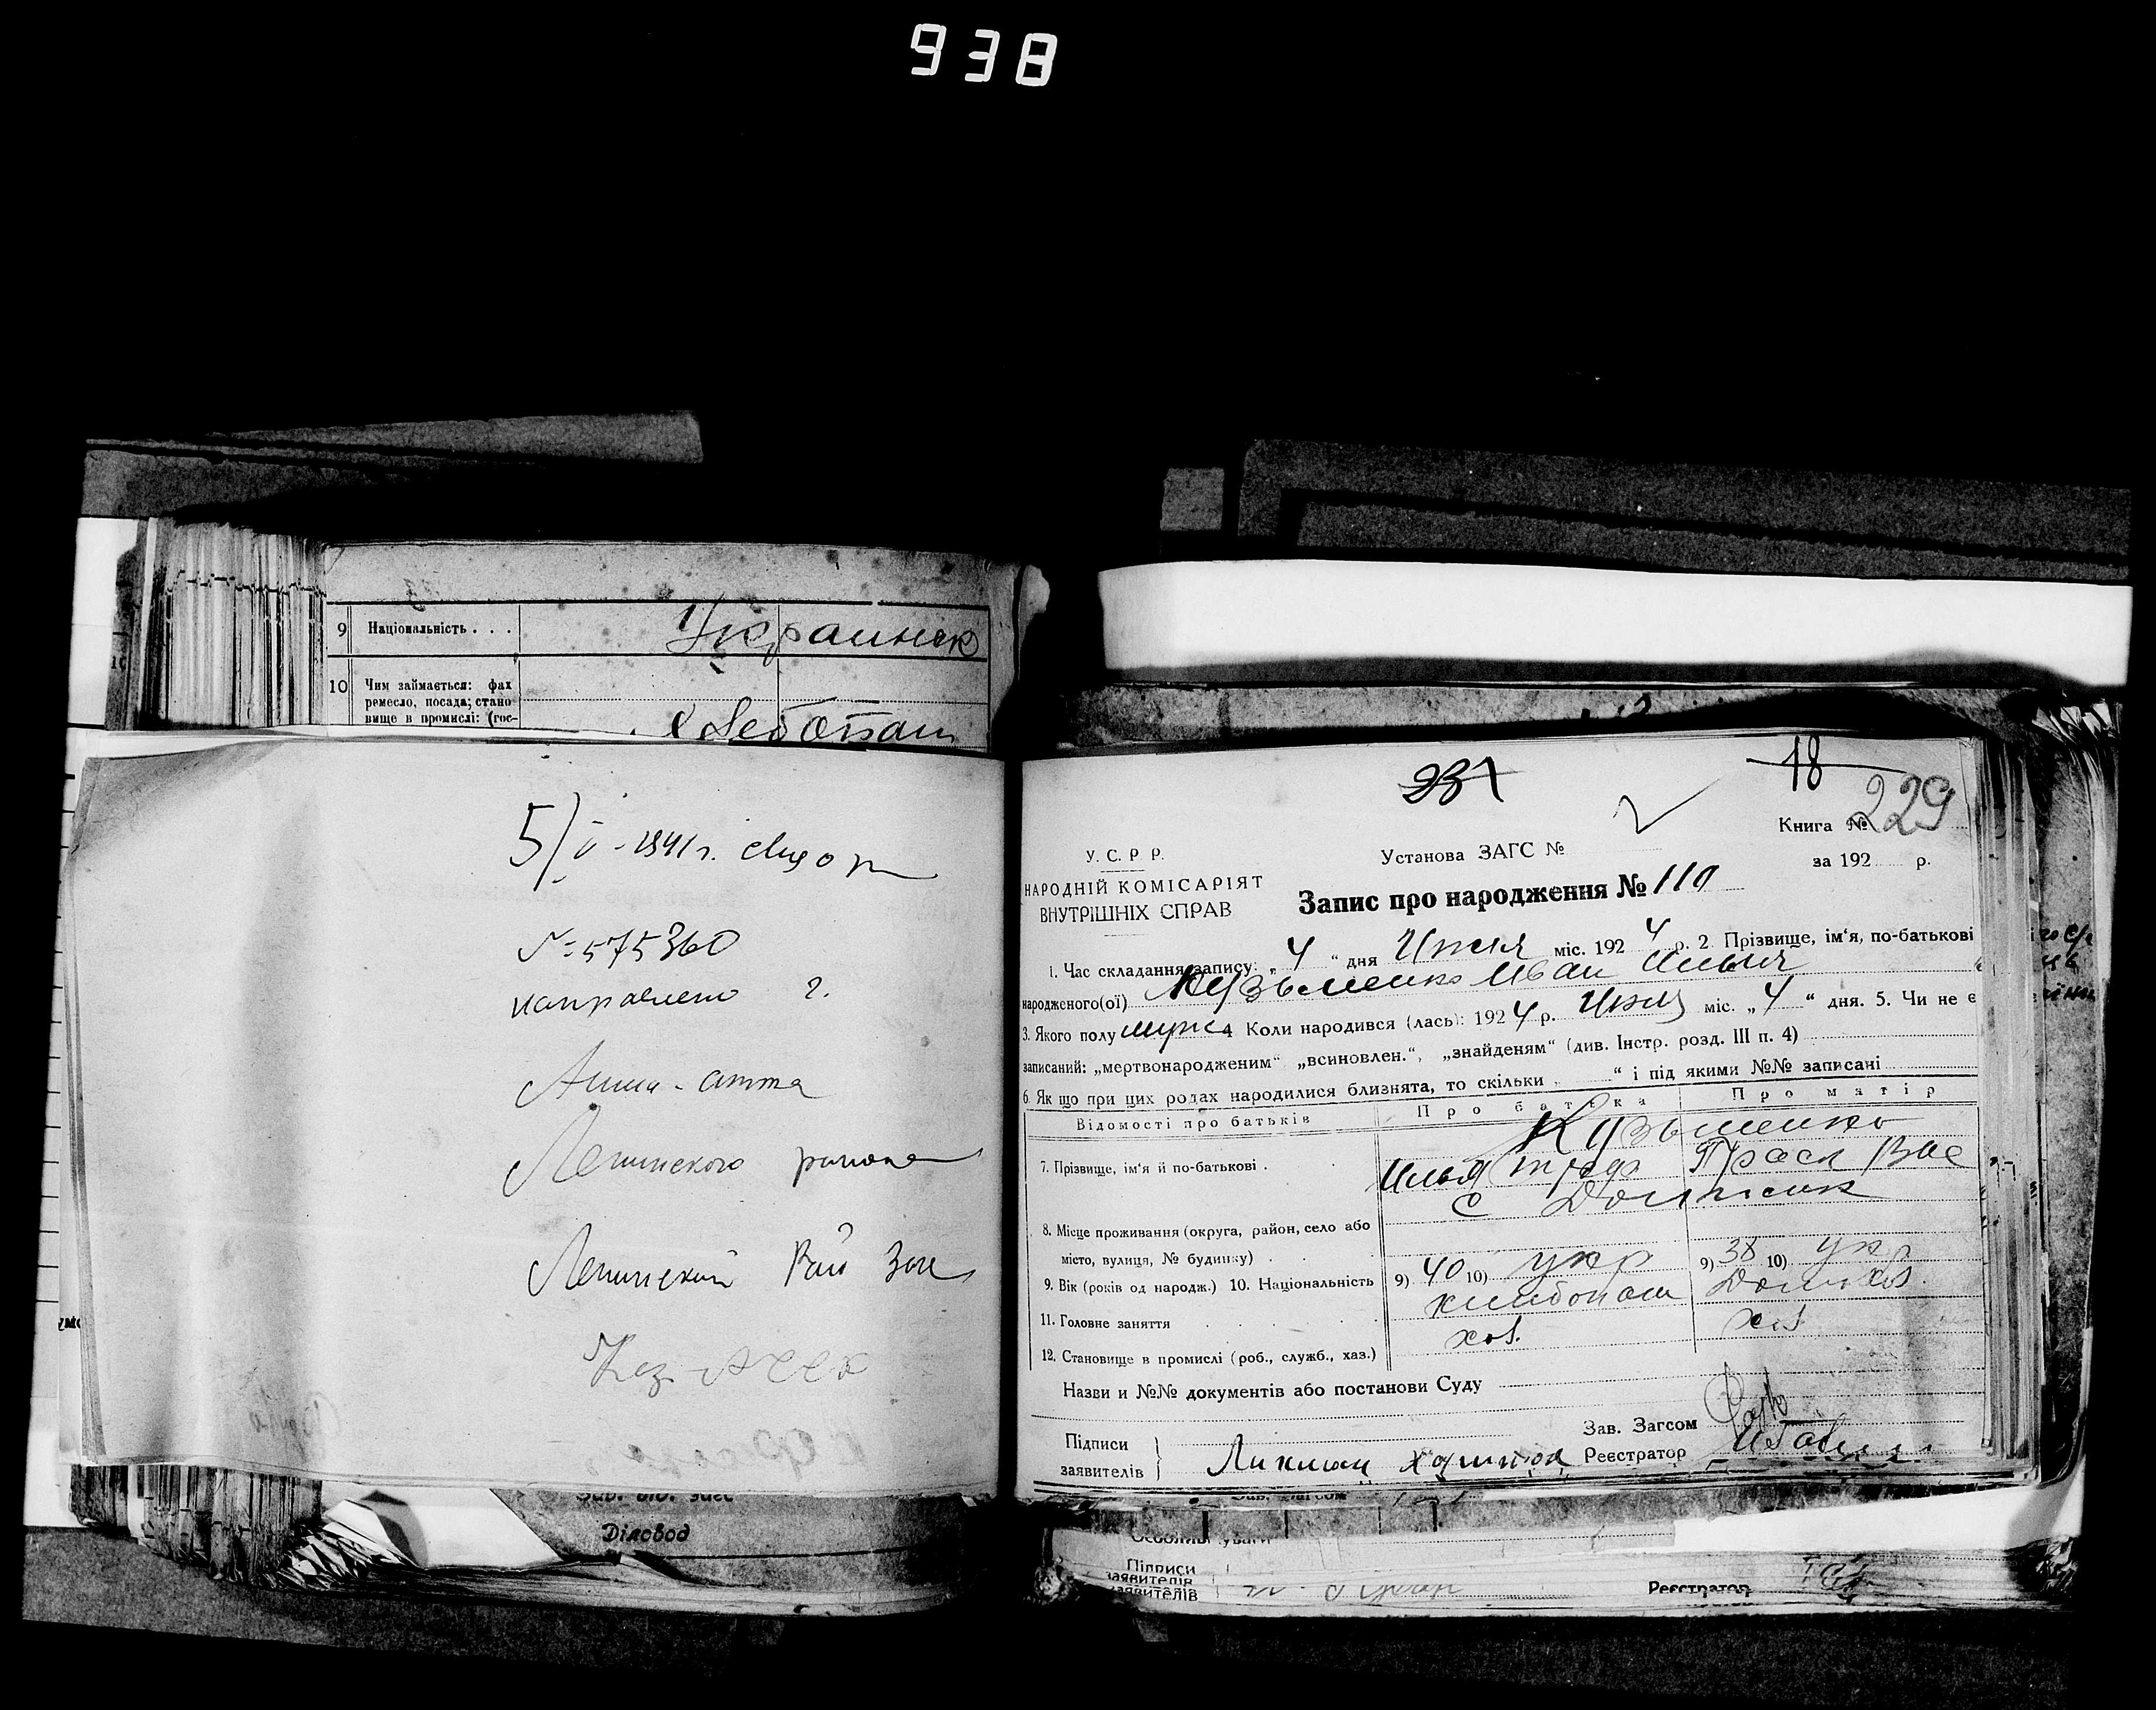 938
9 Національність . . .
Украинск
10 Чим займається: фах
ремесло, посада; стано-
вище в промислі: (гос-
5/V - 1941 г.
№ 575360
направлено г.
Алма-атта
Ленинского района
Ленинский Рай Заг
Каз. АССР
Діловод
231
18
229
Книга №
У. С. Р. Р.
Установа ЗАГС №
за 192 р.
НАРОДНІЙ КОМІСАРІЯТ
ВНУТРІШНІХ СПРАВ
Запис про народження № 110
1. Час складання запису: „ 4 “ дня Июля міс. 192 4 р. 2 Прізвище, ім'я, по-батькові
народженого(ої) Кузьменко Иван Ильич
3. Якого полу мужс 4 Коли народився (лась): 192 4 р. Июля міс. „ 4 “ дня. 5. Чи не є
записаний: „мертвонародженим“ „всиновлен.“, „знайденям“ (див. Інстр. розд. III п. 4)
6. Як що при цих родах народилися близнята, то скільки „ “ і під якими №№ записані
Відомості про батьків
Про батька
Про матір
Кузьменко
7. Прізвище, ім'я й по-батькові .
Илья
Праск Вас
с
8. Місце проживання (округа, район, село або
місто, вулиця, № будинку) .
9. Вік (років од народж.) 10. Національність
9) 40 10) укр
9) 38 10) укр
11. Головне заняття
хлибопаш
Домхоз.
12. Становище в промислі (роб., служб., хаз.)
хоз.
хоз
Назви и №№ документів або постанови Суду
Зав. Загсом
Підписи
заявителів
Реєстратор
Підписи
заявителів
Реєстратор